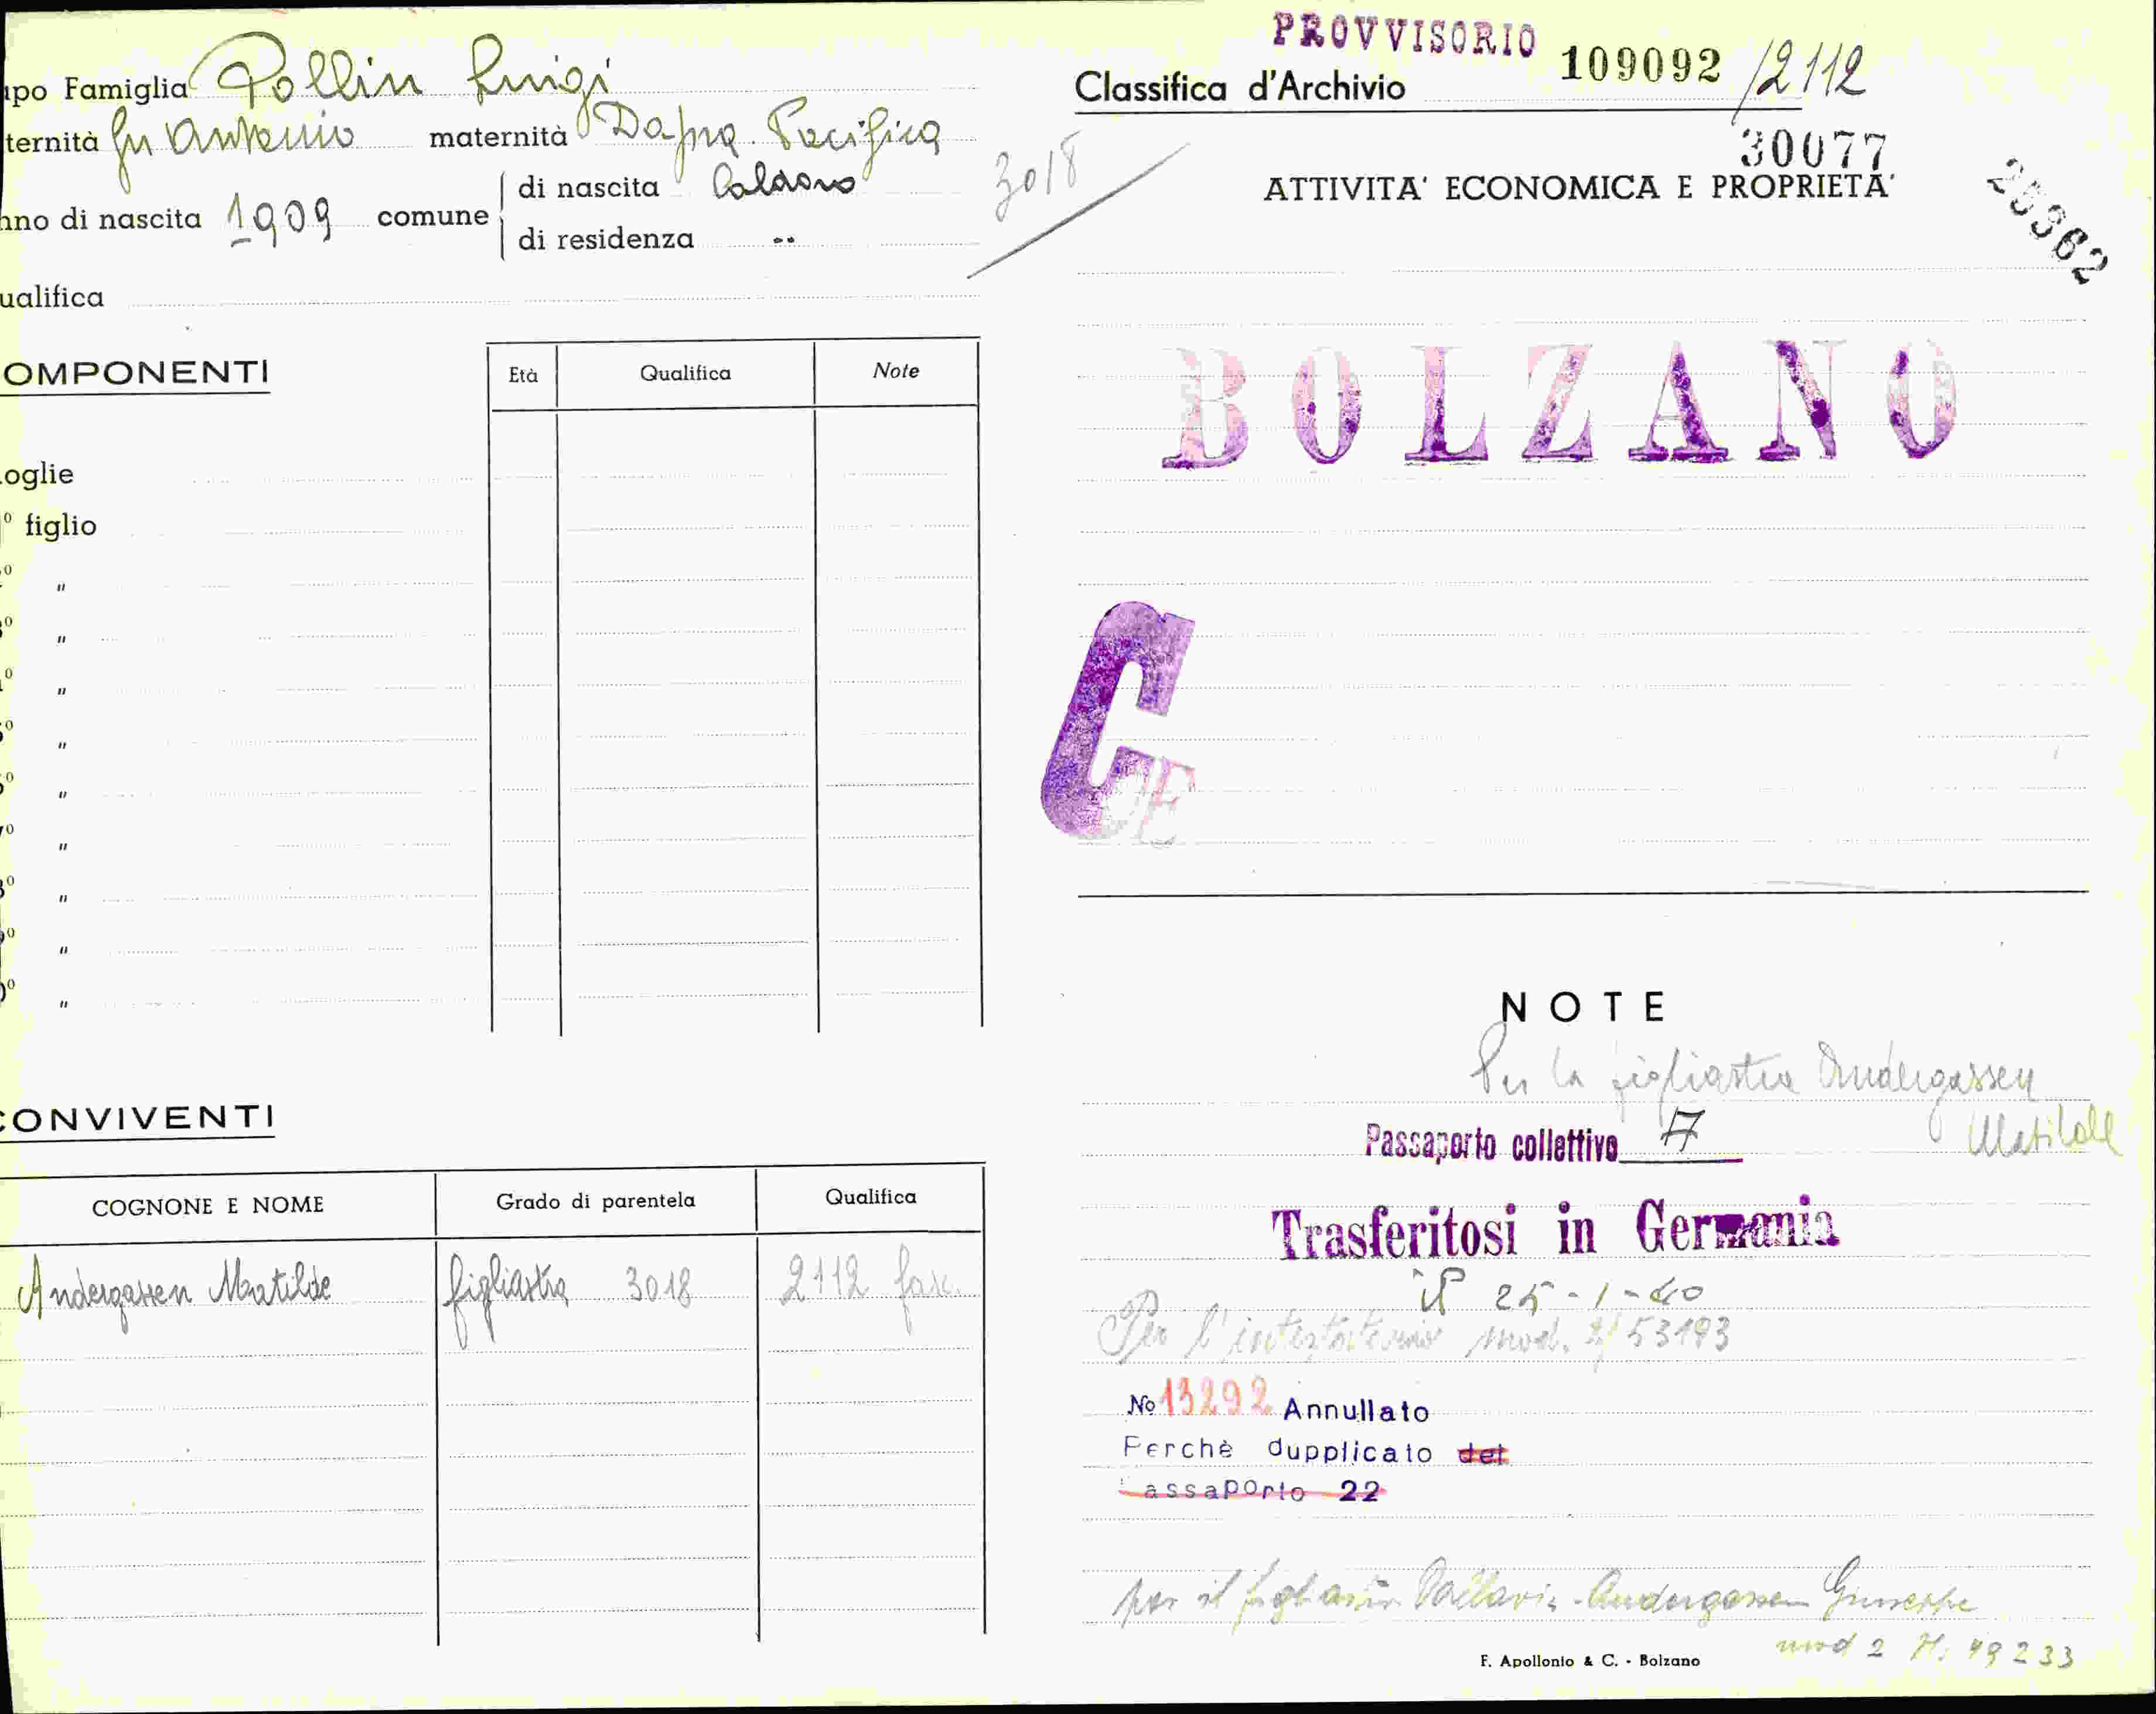 apo Famiglia Pollin Luigi
ternità fu Antonio maternità Dapra Pacifica
nno di nascita 1909 comune di nascita Caldaro
di residenza "
ualifica
3018
OMPONENTI
Età Qualifica Note
oglie
1º figlio
2º "
3º "
4º "
5º "
6º "
7º "
8º "
9º "
10º "
CONVIVENTI
COGNONE E NOME Grado di parentela Qualifica
Andergassen Matilde figliastra 3018 2112 fasc.
PROVVISORIO
Classifica d'Archivio 109092 /2112
30077
ATTIVITA' ECONOMICA E PROPRIETA'
25362
BOLZANO
C
E
NOTE
Per la figliastra Andergassen
Matilde
Passaporto collettivo 7
Trasferitosi in Germania
il 25-1-40
Per l'intestatario mod. 2/53193
No 13292 Annullato
Perchè dupplicato del
assaporto 22
per il figliastro Andergassen Giuseppe
mod 2 N. 49233
F. Apollonio & C. - Bolzano